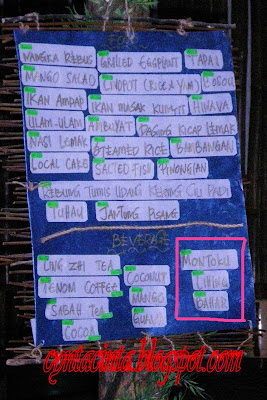 FOOD
NANGKA REBUS GRILLED EGGPLANT TAPAI
MANGO SALAD LINOPOT (RICE & YAM)
IKAN AMPAP IKAN MASAK KUNYIT HINAVA
ULAM-ULAM AMBUYAT DAGING KICAP LEMAK
NASI LEMAK STEAMED RICE BAMBANGAN
LOCAL CAKE SALTED FISH PINONGIAN
KEBUNG TUMIS UDANG CILI PADI
TUHAU JANTUNG PISANG
BEVERAGE
LING ZHI TEA COCONUT MONTOKU
TENOM COFFEE MANGO LIHING
SABAH TEA GUAVA BAHAR
COCOA
cyntacinta.blogspot.com